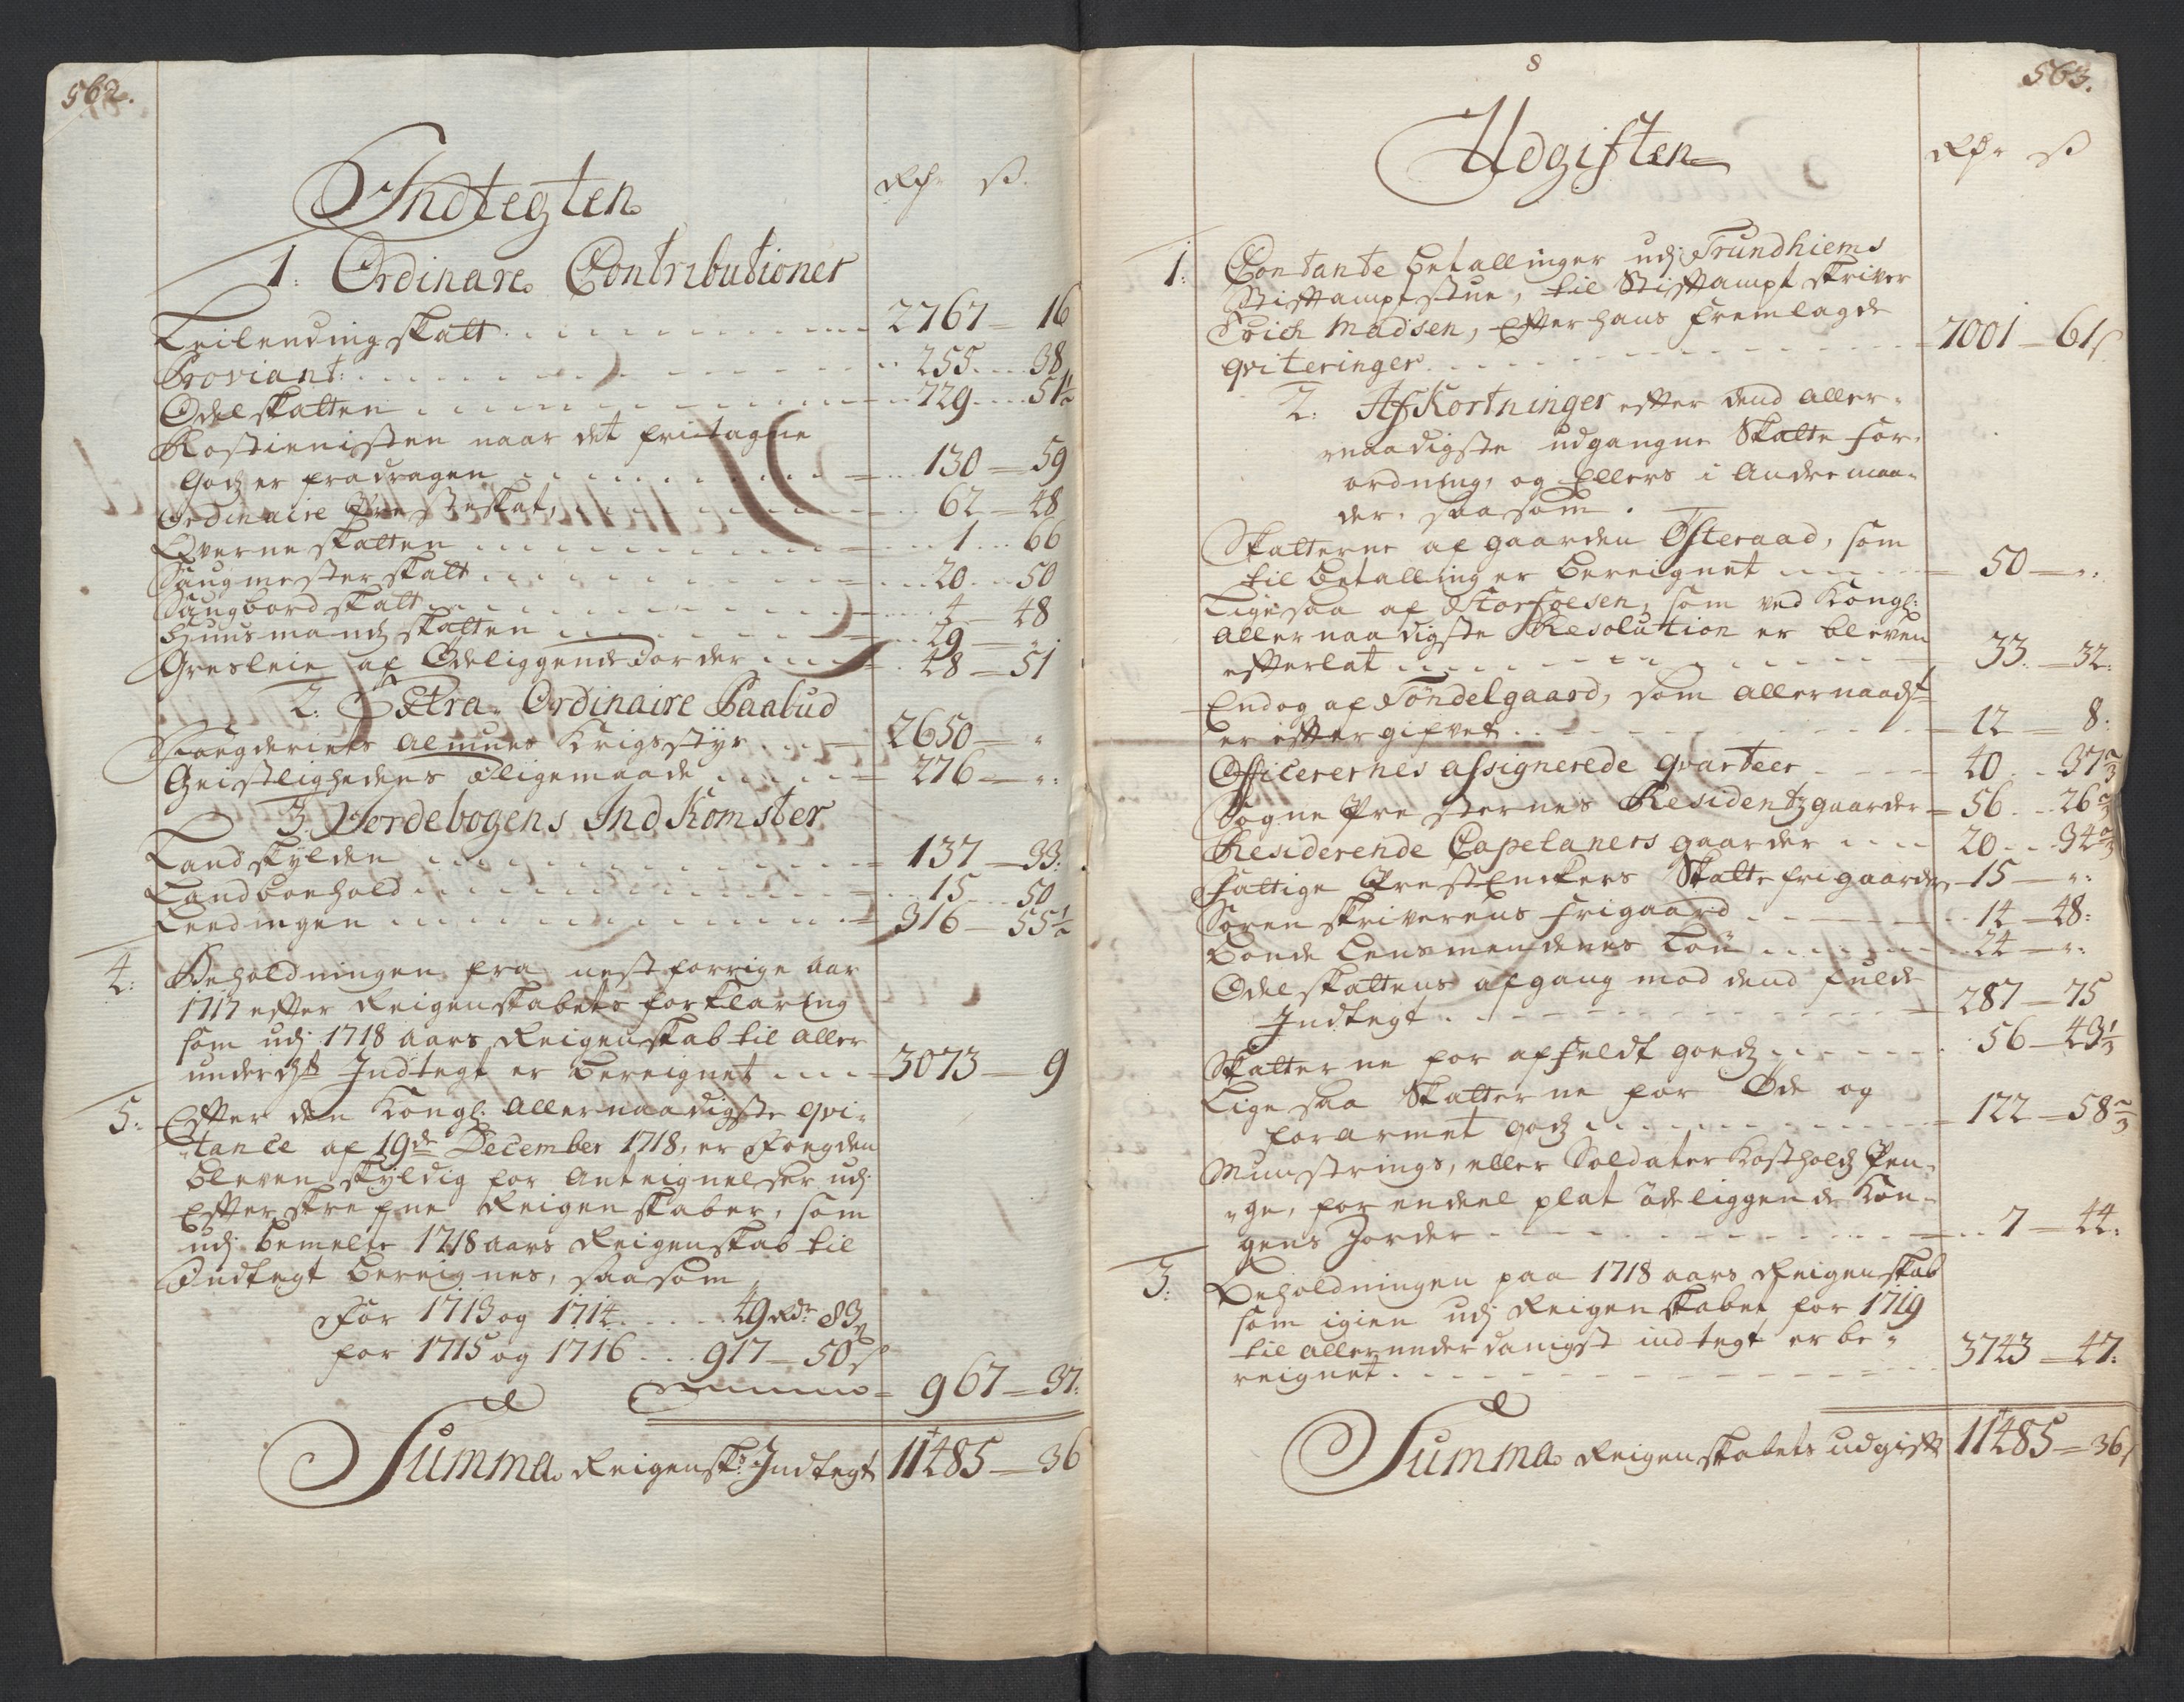 562.
Indtegten
Rdr ß.
1. Ordinare Contributioner
Leilending skatt . . . 2767 — 16
Proviant: . . . 255 . . 38
Odelskatten . . . 729 . . 51½
Rostienisten naar det fritagne
Godz er fradragen . . . 130 — 59
Ordinaire Presteskat, . . . 62 — 48
Qverneskatten . . . 1 . . 66
Saugmesterskatt . . . 20 . . 50
Saugbordskatt . . . 4 — 48
Huusmandz skatten . . . 29 — „.
Gresleie af Ödeliggende Jorder . . . 48 — 51
2. Extra Ordinaire Paabud
Foegderiets Almues Krigsstyr . . . 2650 — „
Geistlighedens aligemaade . . . 276 — „:
3. Jordebogens Ind Komster
Landskylden . . . 137 — 33:
Landboehold . . . 15 . . 50
Leedingen . . . 316 — 55½
4: Beholdningen fra nestforrige aar
1717 efter Reigenskabets forklaring
som udj 1718 aars Reigenskab til aller
underdst Indtegt er bereignet . . . 3073 — 9
5: Efter den Kongl: Allernaadigste qvi-
tance af 19de December 1718, er Foegden
bleven skyldig for Anteignelser udj
Efterskrefne Reigenskaber, som
udj bemelte 1718 aars Reigenskab til
Indtegt bereignes, saasom
For 1713 og 1714 . . . 49 Rdr 83
for 1715 og 1716 . . . 917 — 50 ß
967 — 37:
Summa Reigensk: Indtegt 11485 — 36
8
563.
Udgiften
Rdr ß
1: Contante betallinger udj Trundhiems
Stiftamptstue, til Stiftampt skriver
Erich Madsen, Efter hans fremlagde
qviteringer . . . 7001 — 61 ß
2. AfKortninger efter dend aller-
naadigste udgangne Skatte for-
ordning, og Ellers i Andre maa-
der, saasom.
Skatterne af gaarden Østeraad, som
til betalling er bereignet . . . 50 — „:
Ligesaa af Storfoesen, som ved Kongl:
Allernaadigste Resolution er bleven
efterlat . . . 33. — 32.
Endog af Tøndelgaard, som allernaadst
er eftergifvet . . . 12 — 8:
Officerernes assignerede qvarteer . . . 40 . . 37⅔
Sogne Presternes Residentzgaarder — 56 . . 26⅔
Residerende Capelaners gaarder . . . 20 . . 34⅔
Fattige Prest Enckers Skatte frigaarder — 15 — „:
Sorenskriverens Frigaard . . . 14 — 48:
Bonde Lensmendenes Løn . . . 24 — „:
Odelskattens afgang mod dend fulde
Indtegt . . . 287 — 75
Skatterne for affeldt goedz . . . 56 — 43⅓
Ligesaa Skatterne for Øde og
forarmet godz . . . 122 — 58⅔
Munstrings, eller Soldater Kostholdz Pen-
ge, for endeel plat ödeliggende Kon-
gens Jorder . . . 7 — 44:
3: Beholdningen paa 1718 aars Reigenskab
som igien udj Reigenskabet for 1719
til allerunderdanigst indtegt er be-
reignet . . . 3743 — 47:
Summa Reigenskabets udgift 11485 — 36 ß